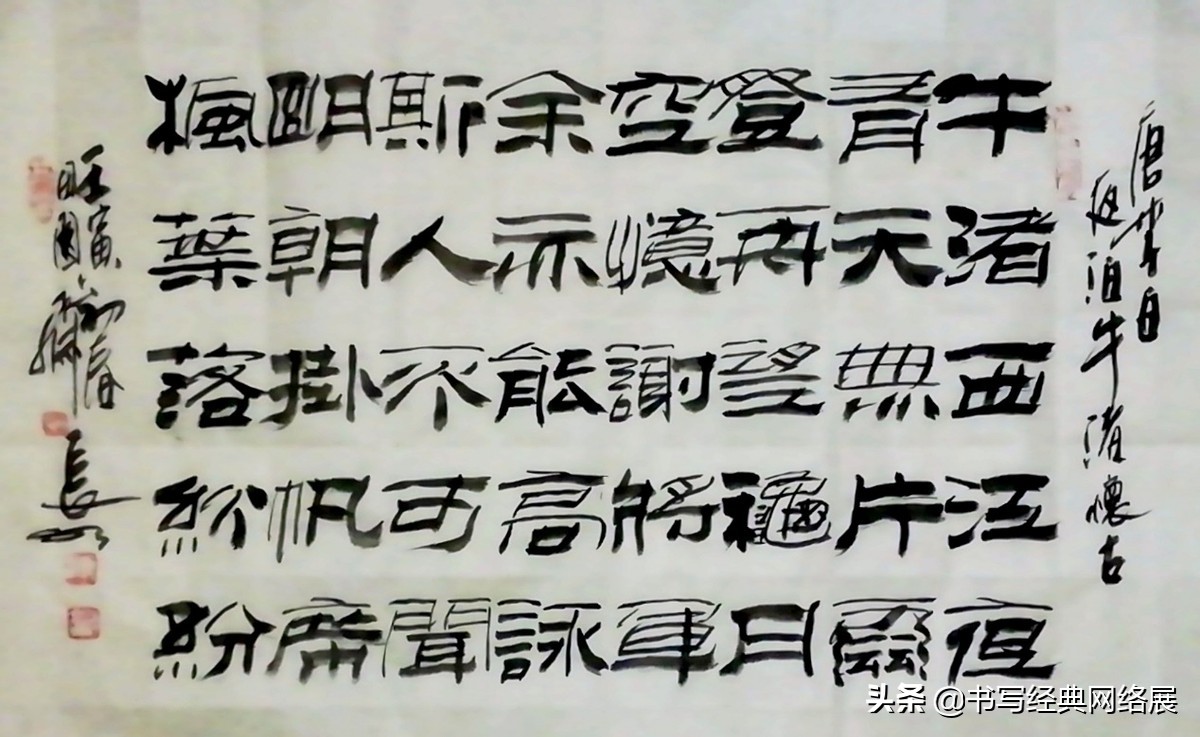 唐李白
夜泊牛渚懷古
牛渚西江夜
青天無片雲
登舟望龝月
空憶謝將軍
余亦能高詠
斯人不可聞
朙朝掛帆席
楓葉落紛紛
壬寅初春
头条 @书写经典网络展